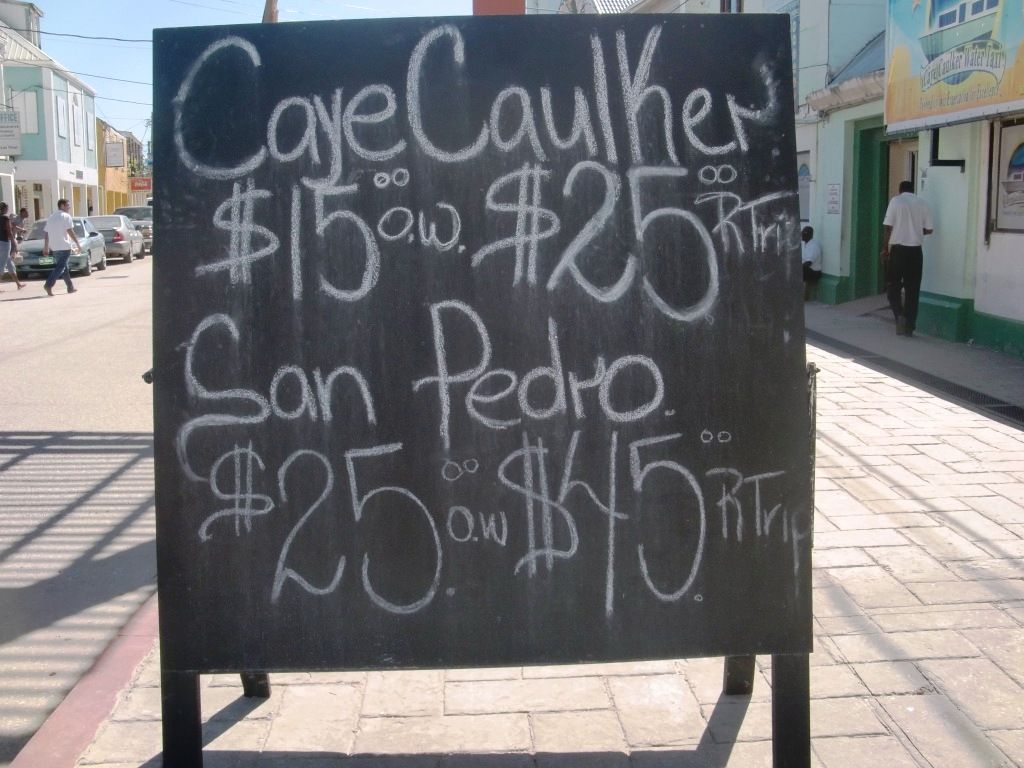 Caye Caulker
$15.00 o.w. $25.00 R Trip
San Pedro.
$25.00 o.w $45.00 R Trip
Caye Caulker Water Taxi
OFFICE